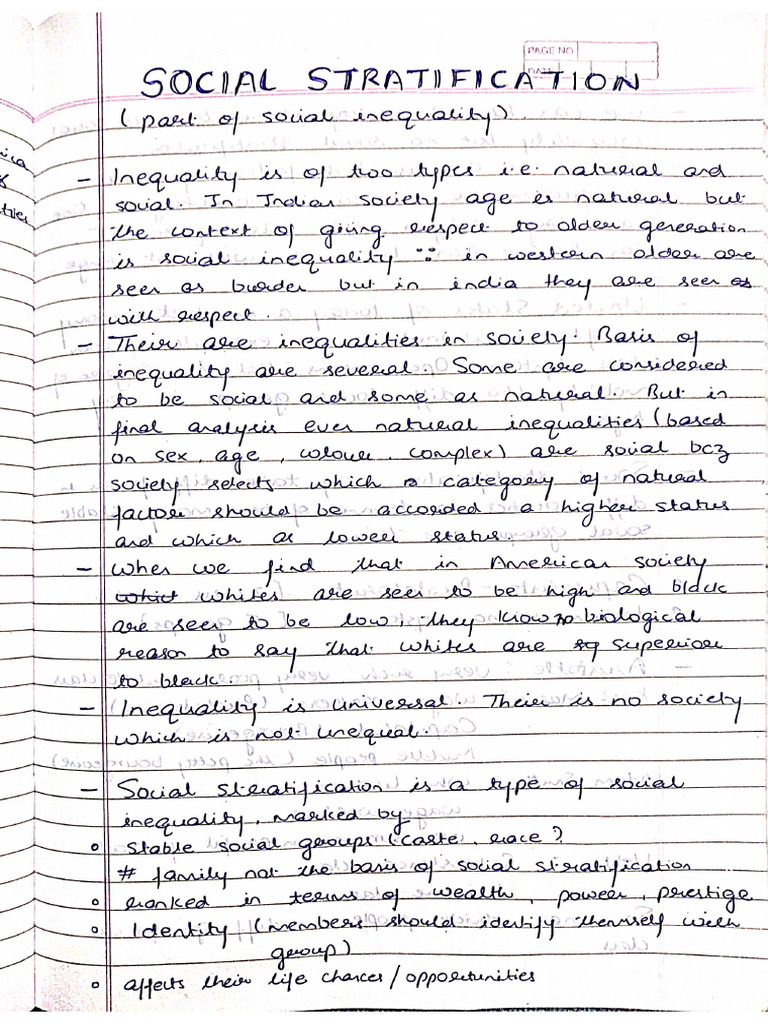 PAGE NO
DATE
SOCIAL STRATIFICATION
(part of social inequality)
- Inequality is of two types i.e. natural and
social. In Indian society age is natural but
the context of giving respect to older generation
is social inequality ∵ in western older are
seen as burden but in india they are seen as
with respect.
- Their are inequalities in society. Basis of
inequality are several. Some are considered
to be social and some as natural. But in
final analysis even natural inequalities (based
on sex, age, colour, complex) are social bcz
society selects which category of natural
factor should be accorded a higher status
and which a lower status
- When we find that in American society
whites are seen to be high and black
are seen to be low, they know no biological
reason to say that whites are superior
to black
- Inequality is universal. Their is no society
which is not unequal.
- Social stratification is a type of social
inequality, marked by
o stable social groups (caste, race?
# family not the basis of social stratification
o ranked in terms of wealth, power, prestige
o Identity (members should identify themself with
group)
o affects their life chances/opportunities